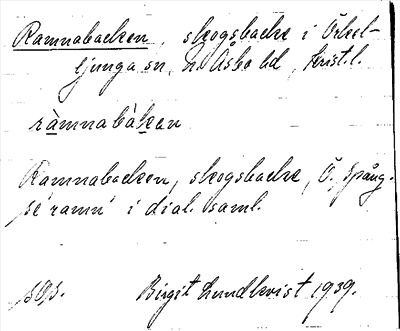 Ramnabacken, skogsbacke i Örkel-
ljunga sn, N. Åsbo hd, Krist. l.
ràmnabàken
Ramnabacken, skogsbacke, Ö. Spång.
se 'ramn' i dial. saml.
Birgit Lundkvist 1939.